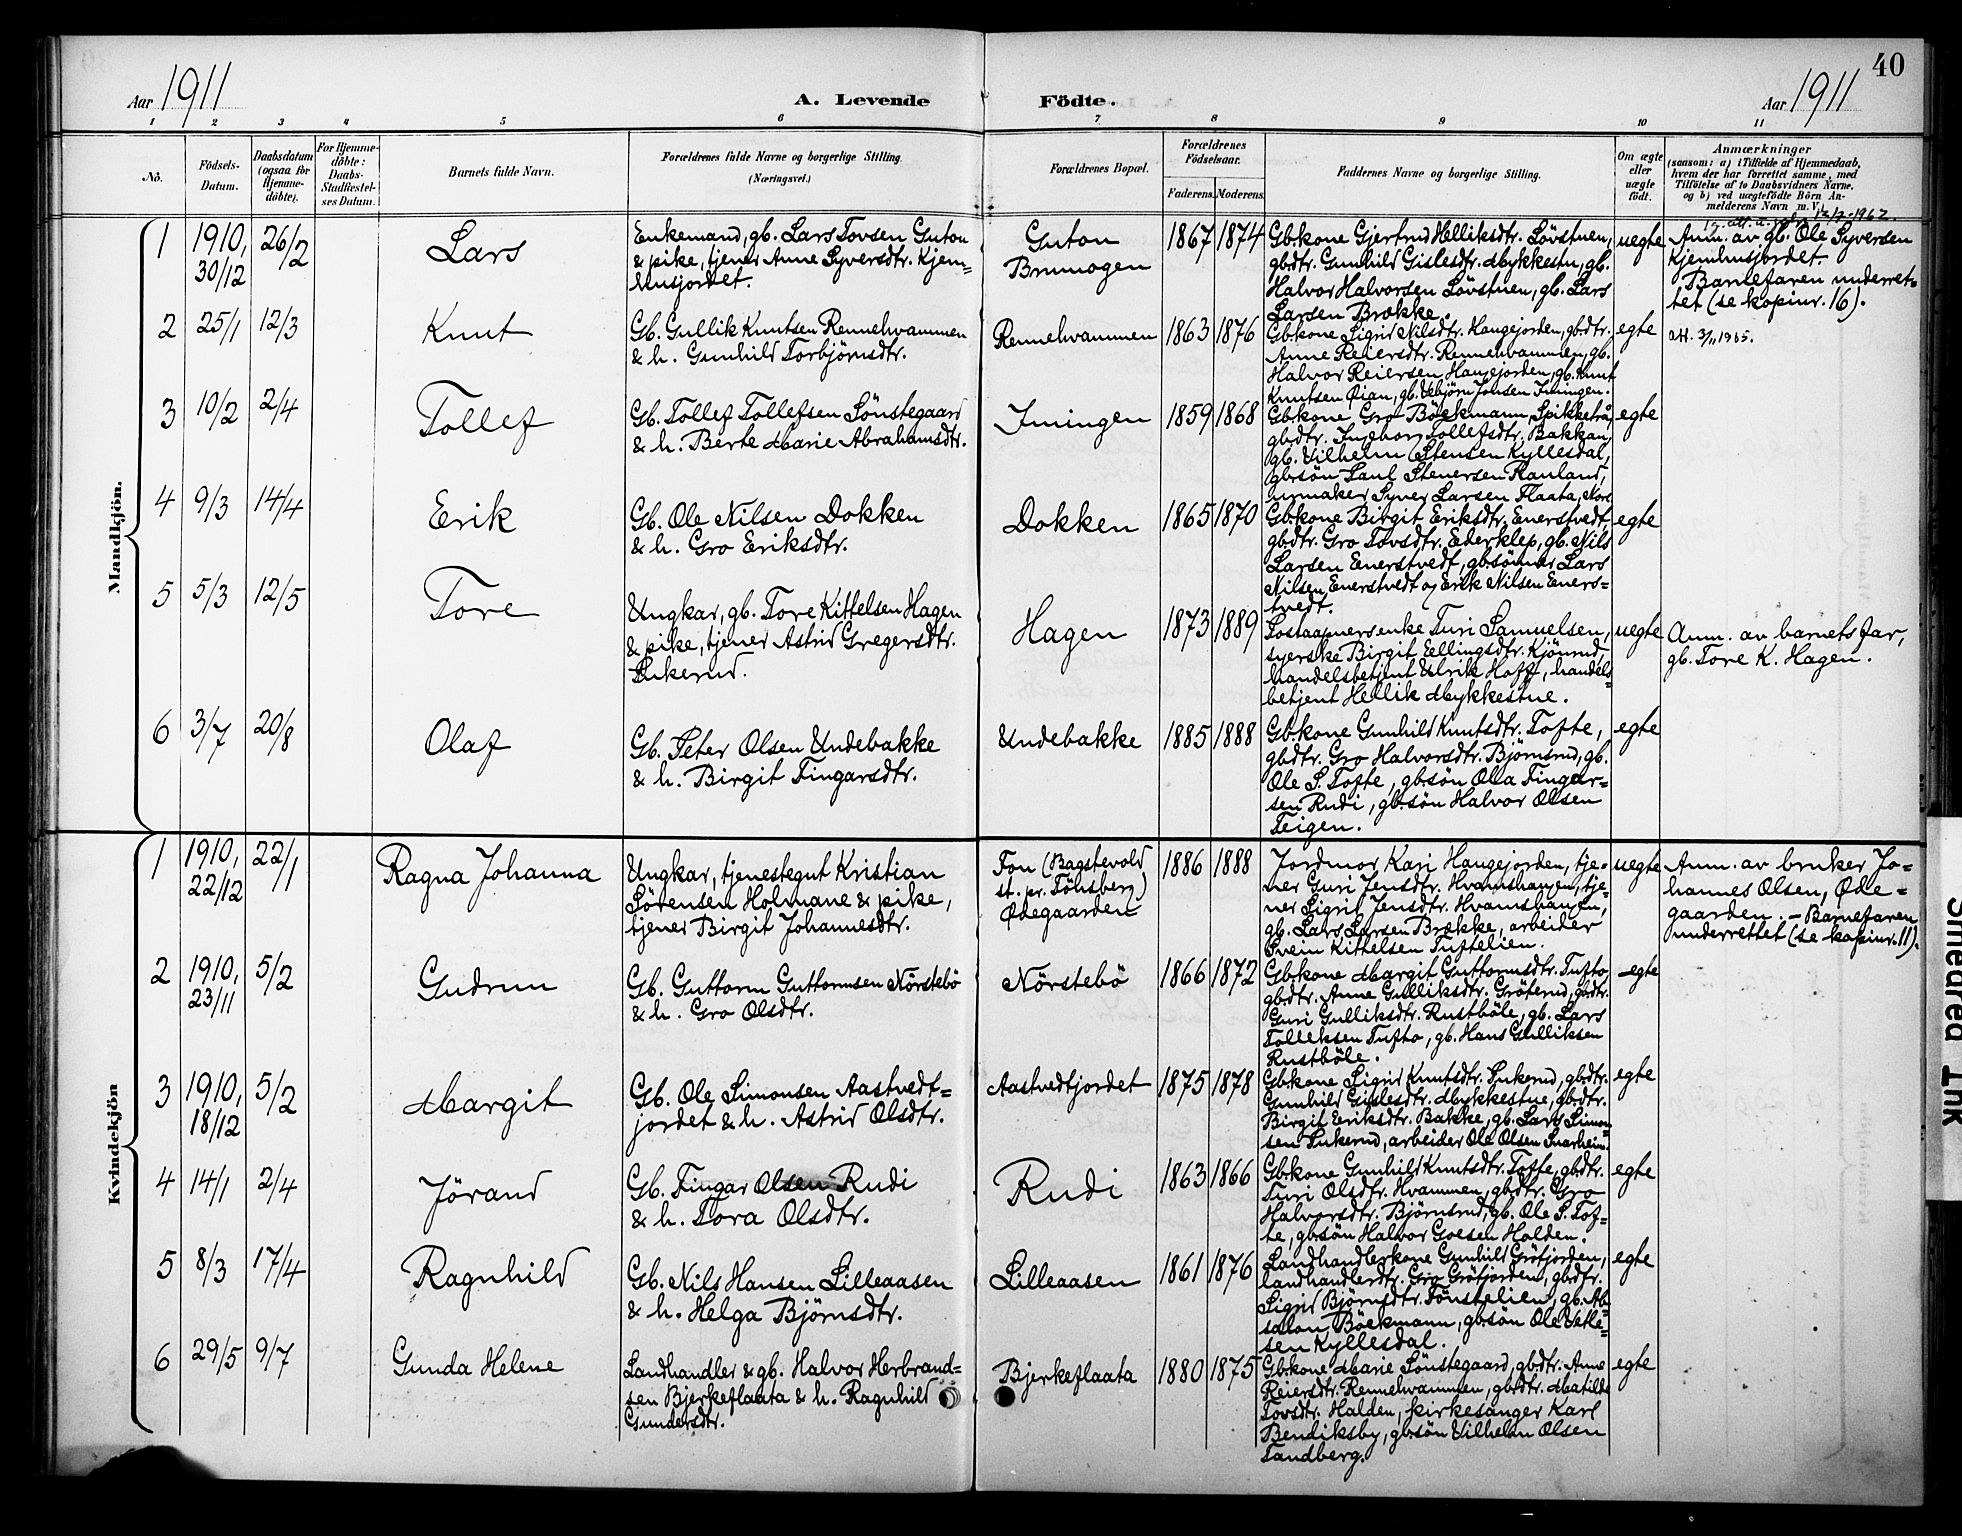 40
Aar 1911
A. Levende Födte.
Aar 1911
1 2 3 4 5 6 7 8 9 10 11
No.
Födsels-Datum.
Daabsdatum (ogsaa for Hjemme-döbte).
For Hjemme-döbte: Daabs-Stadfæstel-ses Datum.
Barnets fulde Navn.
Forældrenes fulde Navne og borgerlige Stilling (Næringsvei.)
Forældrenes Bopæl.
Forældrenes Födselsaar.
Faderens. Moderens.
Faddernes Navne og borgerlige Stilling.
Om ægte eller uægte födt.
Anmærkninger
(saasom: a) i Tilfælde af Hjemmedaab, hvem der har forrettet samme, med Tilföielse af to Daabsvidners Navne, og b) ved uægtefödte Börn Anmelderens Navn m. V.)
Mandkjön.
1 1910, 30/12 26/2 Lars
Enkemand, gb. Lars Tovsen Guton
& pike, tjener Anne Syversdtr. Kjem=
husjordet.
Guton
Brunogen
1867 1874
Gb.kone Gjertrud Helliksdtr. Lövstuen,
gb.dtr. Gunhild Gislesdtr. Mykkestu, gb.
Halvor Halvorsen Lövstuen, gb. Lars
Larsen Brække.
uegte
12/7-1962.
Anm. av gb. Ole Syversen
Kjemhusjordet.
Barnefaren underret-
tet (se kopinr. 16).
2 25/1 12/3 Knut
Gb. Gullik Knutsen Rennehvammen
& h. Gunhild Torbjörnsdtr.
Rennehvammen 1863 1876
Gb.kone Sigrid Nilsdtr. Haugejorden, gb.dtr.
Anne Reiersdtr. Rennehvammen, gb.
Halvor Reiersen Haugejorden, gb. Knut
Knutsen Öian, gb. Vebjörn Johsen Imingen.
egte
att. 3/11 1965.
3 10/2 2/4 Tollef
Gb. Tollef Tollefsen Sönstegaard
& h. Berte Marie Abrahamsdtr.
Imingen 1859 1868
Gb.kone Gro Böckmann, Spikketrå
gb.dtr. Ingeborg Tollefsdtr. Bakkan,
gb. Vilhelm Stensen Kyllesdal,
gb.sön Paul Stenersen Rauland,
urmaker Syver Larsen Flaata, Nore
egte
4 9/3 14/4 Erik
Gb. Ole Nilsen Dokken
& h. Gro Eriksdtr.
Dokken 1865 1870
Gb.kone Birgit Eriksdtr. Enerstvedt,
gb.dtr. Gro Tovsdtr. Ederklep, gb. Nils
Larsen Enerstvedt, gb.sönner Lars
Nilsen Enerstvedt og Erik Nilsen Eners=
tvedt.
egte
5 5/3 12/5 Tore
Ungkar, gb. Tore Kittelsen Hagen
& pike, tjener Astrid Gregersdtr.
Lukerud.
Hagen 1873 1889
Postaapnersenke Turi Samuelsen,
syerske Birgit Eellingsdtr. Kjönrud,
handelsbetjent Ulrik Hoff, handels=
betjent Hellik Mykkestue.
uegte
Anm. av barnets far,
gb. Tore K. Hagen.
6 3/7 20/8 Olaf
Gb. Peter Olsen Undebakke
& h. Birgit Fingarsdtr.
Undebakke 1885 1888
Gb.kone Gunhild Knutsdtr. Tofte,
gb.dtr. Gro Halvorsdtr. Björnsrud, gb.
Ole S. Tofte, gb.sön Ola Fingar-
sen Rudi, gb.sön Halvor Olsen
Teigen.
egte
Kvindekjön
1 1910, 22/12 22/1 Ragna Johanna
Ungkar, tjenestegut Kristian
Sörensen Holmane & pike,
tjener Birgit Johannesdtr.
Fon (Bagstevold
st. pr. Tönsberg)
Ödegaarden
1886 1888
Jordmor Kari Haugejorden, tje-
ner Guri Jensdtr. Hvamshaugen, tje-
ner Sigrit Jensdtr. Hvamshaugen,
gb. Lars Larsen Brække, arbeider
Svein Kittelsen Tuftelien.
uegte
Anm. av bruker Jo-
hannes Olsen, Öde-
gaarden. - Barnefaren
underrettet (se kopinr. 11).
2 1910, 23/11 5/2 Gudrun
Gb. Guttorm Guttormsen Nörstebö
& h. Gro Olsdtr.
Nörstebö 1866 1872
Gb.kone Margit Guttormsdtr. Tufto,
gb.dtr. Anne Gulliksdtr. Gröterud, gb.dtr.
Guri Gulliksdtr. Rustböle, gb. Lars
Tolleksen Tufto, gb. Hans Gulliksen
Rustböle.
egte
3 1910, 18/12 5/2 Margit
Gb. Ole Simonsen Aastvedt=
jordet & h. Astrid Olsdtr.
Aastvedtjordet 1875 1878
Gb.kone Sigrid Knutsdtr. Lukerud, gb.dtr.
Gunhild Gislesdtr. Mykkestue, gb.dtr.
Birgit Eriksdtr. Bakke, gb. Lars Simon=
sen Lukerud, arbeider Ole Olsen Snarheim.
egte
4 14/1 2/4 Jörand
Gb. Fingar Olsen Rudi
& h. Tora Olsdtr.
Rudi 1863 1866
Gb.kone Gunhild Knutsdtr. Tofte, gb.dtr.
Turi Olsdtr. Hvammen, gb.dtr. Gro
Halvorsdtr. Björnsrud, gb. Ole S. Tof-
te, gb.sön Halvor Goesen Holden.
egte
5 8/3 17/4 Ragnhild
Gb. Nils Hansen Lilleaasen
& h. Helga Björnsdtr.
Lilleaasen 1861 1876
Landhandlerkone Gunhild Gröfjorden,
landhandlerdtr. Gro Gröfjorden, gb.dtr.
Sigrid Björnsdtr. Tönstelien, gb. Ab-
salon Böckmann, gb.sön Ole Vetle-
sen Kyllesdal.
egte
6 29/5 9/7 Gunda Helene
Landhandler & gb. Halvor Herbrand=
sen Bjerkeflaata & h. Ragnhild
Gundersdtr.
Bjerkeflaata 1880 1875
Gb.kone Marie Sönstegaard, gb.dtr. Anne
Reiersdtr. Rennehvammen, gb.dtr. Matilde
Tovsdtr. Halden, kirkesanger Karl
Bendiksby, gb.sön Vilhelm Olsen
Tandberg.
egte
Smeared Ink